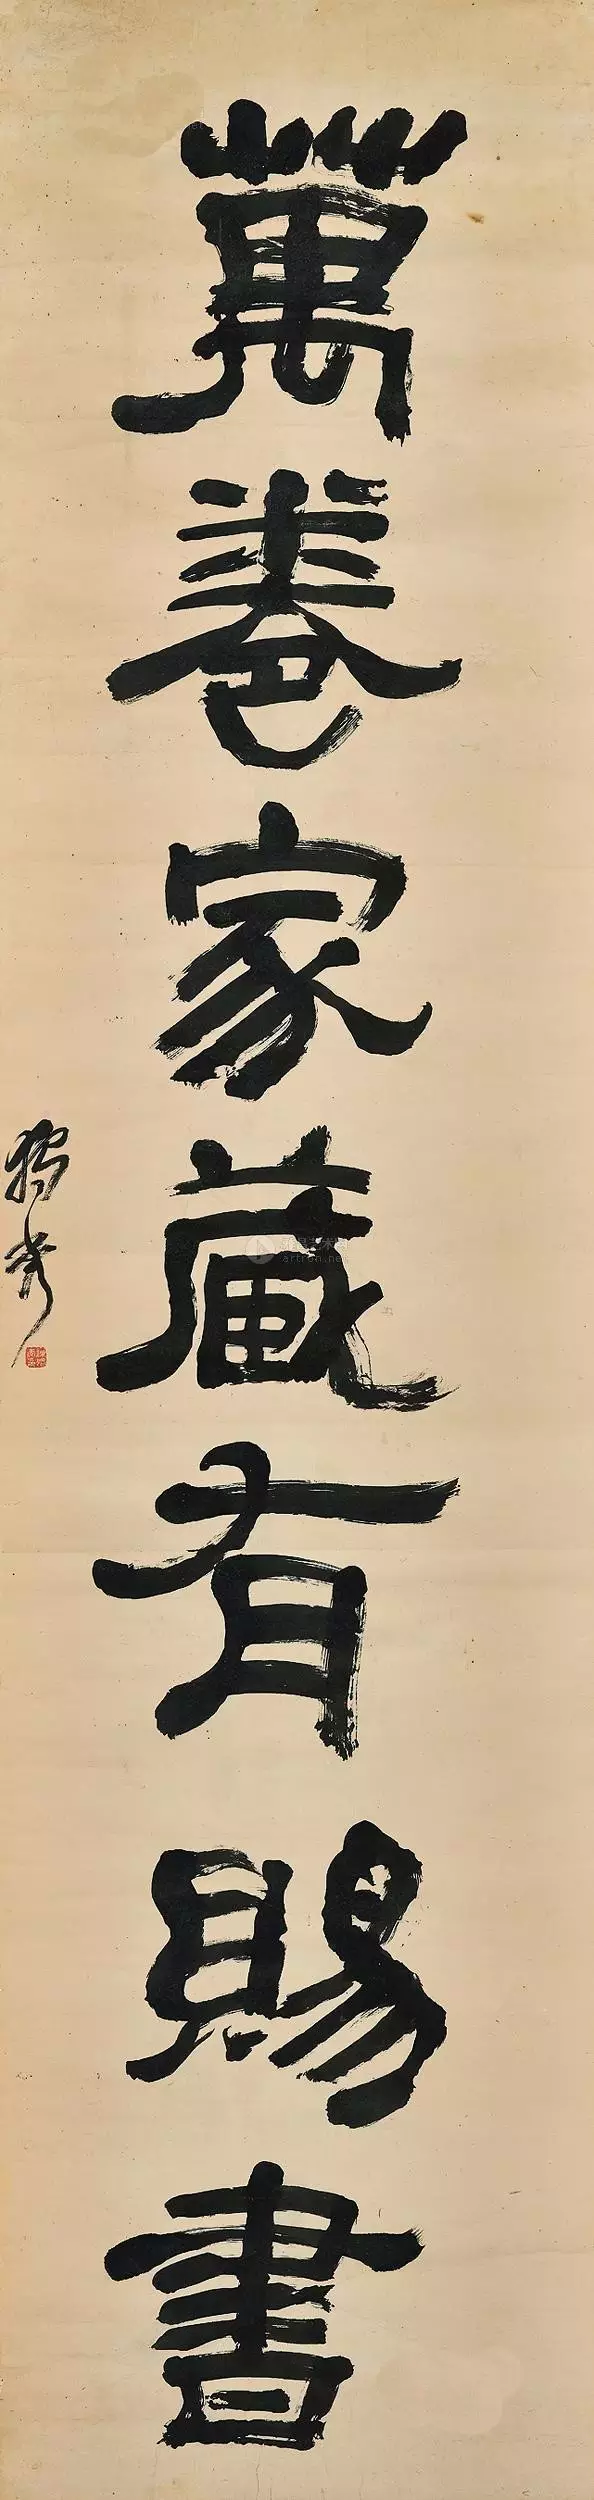 萬卷家藏有賜書
獨秀
artron.net